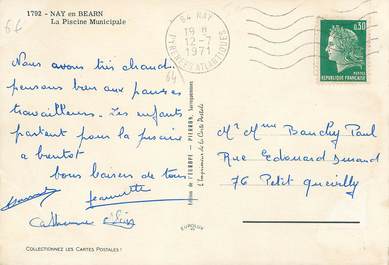 64
1702 - NAY en BEARN
La Piscine Municipale
64 NAY
19 H
12-7
1971
PYRENEES ATLANTIQUES
0,30
POSTES
REPUBLIQUE FRANÇAISE
64
Nous avons très chaud.
pensons bien aux pauvres
travailleurs. Les enfants
partent pour la piscine
a bientot
bons baisers de tous
Jeannette
Catherine
Editions de l'EUROPE - PIERRON, Sarreguemines
L'Imprimeur de la Carte Postale
EUROLUX
Mr Mme Bauchy Paul
Rue Edouard
76 Petit Quevilly
COLLECTIONNEZ LES CARTES POSTALES !